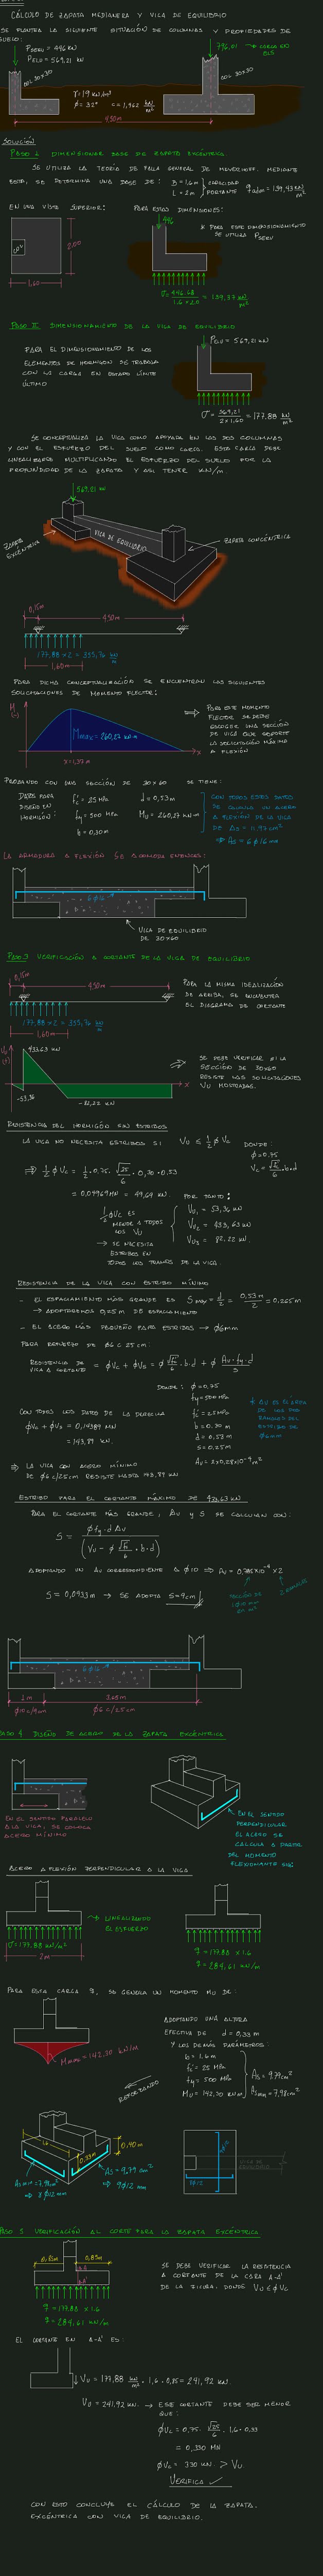 CÁLCULO DE ZAPATA MEDIANERA Y VIGA DE EQUILIBRIO
SE PLANTEA LA SIGUIENTE SITUACIÓN DE COLUMNAS Y PROPIEDADES DE
SUELO:
PSERV = 446 KN
PELU = 569,21 KN
COL 30x30
γ = 19 KN/m³
φ = 32°
COL 30x30
4.50 m
SOLUCIÓN
PASO 1. DIMENSIONAR BASE DE ZAPATA EXCÉNTRICA
SE UTILIZA LA TEORÍA DE FALLA GENERAL DE MEYERHOFF. MEDIANTE
ESTO, SE DETERMINA UNA BASE DE:
B = 1,6 m
L = 2 m
CAPACIDAD
PORTANTE
EN UNA VISTA SUPERIOR:
PARA ESTAS DIMENSIONES:
446
* PARA ESTE DIMENSIONAMIENTO
SE UTILIZA PSERV
2,00
1,60
PASO II. DIMENSIONAMIENTO DE LA VIGA DE EQUILIBRIO
PARA EL DIMENSIONAMIENTO DE LOS
ELEMENTOS DE HORMIGÓN SE TRABAJA
CON LA CARGA EN ESTADO LÍMITE
ÚLTIMO
= 569,21 KN
σ = 569,21 / 2 x 1,60 = 177,88 KN/m²
SE CONCEPTUALIZA LA VIGA COMO APOYADA EN LAS DOS COLUMNAS
Y CON EL ESFUERZO DEL SUELO COMO CARGA. ESTA CARGA DEBE
LINEALIZARSE MULTIPLICANDO EL ESFUERZO DEL SUELO POR LA
PROFUNDIDAD DE LA ZAPATA Y ASÍ TENER KN/m.
569,21 KN
VIGA DE EQUILIBRIO
ZAPATA
EXCÉNTRICA
ZAPATA CONCÉNTRICA
0,15m
4,50m
177,88 x 2 = 355,76 KN/m
1,60 m
PARA DICHA CONCEPTUALIZACIÓN SE ENCUENTRAN LAS SIGUIENTES
SOLICITACIONES DE MOMENTO FLECTOR:
M
(-)
x
PARA ESTE MOMENTO
FLECTOR SE DEBE
ESCOGER UNA SECCIÓN
DE VIGA QUE SOPORTE
LA SOLICITACIÓN MÁXIMA
A FLEXIÓN
PROBANDO CON UNA SECCIÓN DE 30x60 SE TIENE:
DATOS PARA
DISEÑO EN
HORMIGÓN:
f'c = 25 MPa
fy = 500 MPa
b = 0,30 m
d = 0,53 m
CON TODOS ESTOS DATOS
SE CALCULA UN ACERO
A FLEXIÓN DE LA VIGA
DE As = 11,93 cm²
⇒ As = 6 φ 16 mm
LA ARMADURA A FLEXIÓN SE ACOMODA ENTONCES:
6φ16
VIGA DE EQUILIBRIO
DE 30x60
PASO 3 VERIFICACIÓN A CORTANTE DE LA VIGA DE EQUILIBRIO
0,15m
4,50m
177,88 x 2 = 355,76 KN/m
1,60 m
PARA LA MISMA IDEALIZACIÓN
DE ARRIBA, SE ENCUENTRA
EL DIAGRAMA DE CORTANTE
433,63 KN
-53,36
-82,22 KN
x
SE DEBE VERIFICAR SI LA
SECCIÓN DE 30x60
RESISTE LAS SOLICITACIONES
VU MOSTRADAS.
RESISTENCIA DEL HORMIGÓN SIN ESTRIBOS
LA VIGA NO NECESITA ESTRIBOS SI: VU ≤ ½ φ VC
DONDE:
φ = 0,75
VC = √f'c / 6 · b·d
⇒ ½ φ VC = ½ · 0,75 · √25 / 6 · 0,30 · 0,53
= 0,04969 MN = 49,69 KN.
½ φVC ES
MENOR A TODOS
LOS VU
→ SE NECESITA
ESTRIBOS EN
TODOS LOS TRAMOS DE LA VIGA.
POR TANTO:
VU1 = 53,36 KN
VU2 = 433,63 KN
VU3 = 82,22 KN.
RESISTENCIA DE LA VIGA CON ESTRIBO MÍNIMO
- EL ESPACIAMIENTO MÁS GRANDE ES Smax = d/2 = 0,53 m / 2 = 0,265 m
→ ADOPTAREMOS 0,25 m DE ESPACIAMIENTO
- EL ACERO MÁS PEQUEÑO PARA ESTRIBOS → φ6mm
PARA REFUERZO DE φ6 C 25 cm:
RESISTENCIA DE
VIGA A CORTANTE = φVC + φVS = φ √f'c / 6 · b·d + φ Av·fy·d / S
DONDE: φ = 0,75
fy = 500 MPa
f'c = 25 MPa
b = 0,30 m
d = 0,53 m
S = 0,25 m
CON TODOS LOS DATOS DE LA DERECHA
φVC + φVS = 0,14389 MN
= 143,89 KN.
⇒ LA VIGA CON ACERO MÍNIMO
DE φ6 c/25 cm RESISTE HASTA 143,89 KN
ESTRIBO PARA EL CORTANTE MÁXIMO DE 433,63 KN
PARA EL CORTANTE MÁS GRANDE, AV Y S SE CALCULAN CON:
S = φ fy · d · Av / (VU - φ √f'c / 6 · b·d)
ADOPTANDO UN AV CORRESPONDIENTE A φ10 ⇒ AV = 0,785x10⁻⁴ x 2
SECCIÓN DE
2 RAMAS
S = 0,0933 m → SE ADOPTA S = 9 cm
6φ16
1 m
3,65 m
φ10 c/9cm
φ6 c/25cm
PASO 4 DISEÑO DE ACERO DE LA ZAPATA EXCÉNTRICA
EN EL SENTIDO PARALELO
A LA VIGA, SE COLOCA
ACERO MÍNIMO
EN EL SENTIDO
PERPENDICULAR
EL ACERO SE
CALCULA A PARTIR
DEL MOMENTO
FLEXIONANTE
ACERO A FLEXIÓN PERPENDICULAR A LA VIGA
LINEALIZANDO
EL ESFUERZO
σ = 177,88 KN/m²
2 m
q = 177,88 x 1.6
q = 284,61 KN/m
PARA ESTA CARGA q, SE GENERA UN MOMENTO MU DE:
Mmax = 142,30 KN/m
ADOPTANDO UNA ALTURA
EFECTIVA DE d = 0,33 m
Y LOS DEMÁS PARÁMETROS:
b = 1,6 m
f'c = 25 MPa
fy = 500 MPa
MU = 142,30 KN m
As = 9,79 cm²
Asmin = 7,98 cm²
REFORZANDO
1,6
0,40 m
0,33 m
As = 9,79 cm²
⇒ 9φ12 mm
As min = 7,98 cm²
VIGA DE
EQUILIBRIO
PASO 5 VERIFICACIÓN AL CORTE PARA LA ZAPATA EXCÉNTRICA
0,85m
0,85m
q = 177,88 x 1.6
q = 284,61 KN/m
SE DEBE VERIFICAR LA RESISTENCIA
A CORTANTE DE LA CARA A-A'
DE LA FIGURA, DONDE VU ≤ φVC
EL CORTANTE EN A-A' ES:
VU = 177,88 KN/m² · 1,6 · 0,85 = 241,92 KN.
VU = 241,92 KN. → ESE CORTANTE DEBE SER MENOR
QUE:
φVC = 0,75 · √25 / 6 · 1,6 · 0,33
= 0,330 MN
φVC = 330 KN. > VU.
VERIFICA ✓
CON ESTO CONCLUYE EL CÁLCULO DE LA ZAPATA
EXCÉNTRICA CON VIGA DE EQUILIBRIO.